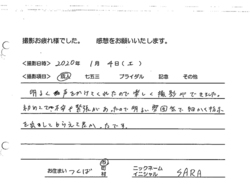 撮影お疲れ様でした。　感想をお願いいたします。
<撮影日時>　2020年　1月　4日(土)
<撮影項目>　成人　七五三　ブライダル　記念　その他
明るく声をかけてくれたので楽しく撮影ができました。
初めてで不安や緊張があったので明るい雰囲気で細かく指示
を出してもらえて良かったです。
お住まい　つくば　市町村　ニックネーム イニシャル　SARA